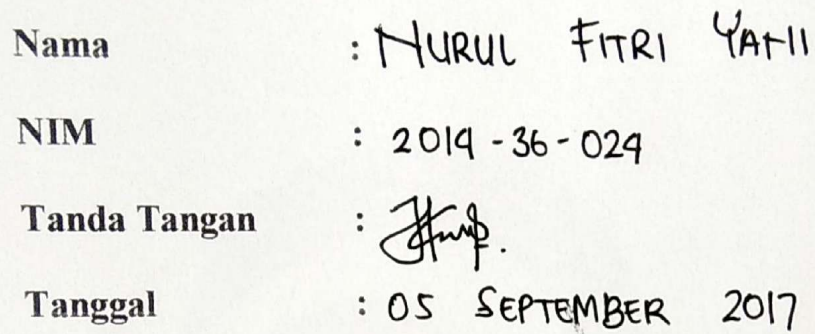 Nama : NURUL FITRI YAHII
NIM : 2014-36-024
Tanda Tangan :
Tanggal : 05 SEPTEMBER 2017